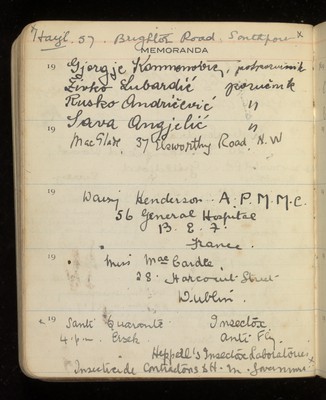 Hayl. 57. Brighton Road. Southport x
MEMORANDA
19 Gjorgje potporucnik
Živko Lubardić poručnik
Rusko Andrićević "
19 Sava Angjelić "
MacGlade, 37 Elsworthy Road, N.W
19
Daisy Henderson. A.P.M.M.C.
56 General Hospital
B. E. F.
France.
19 Miss MacCardle
28. Harcourt Street
Dublin.
19 Santi Quaranta Insectox
4 p.m. Anti Fly.
Heppell's Insectox Laboratories x
Insecticide Contractors to H. M. Government x